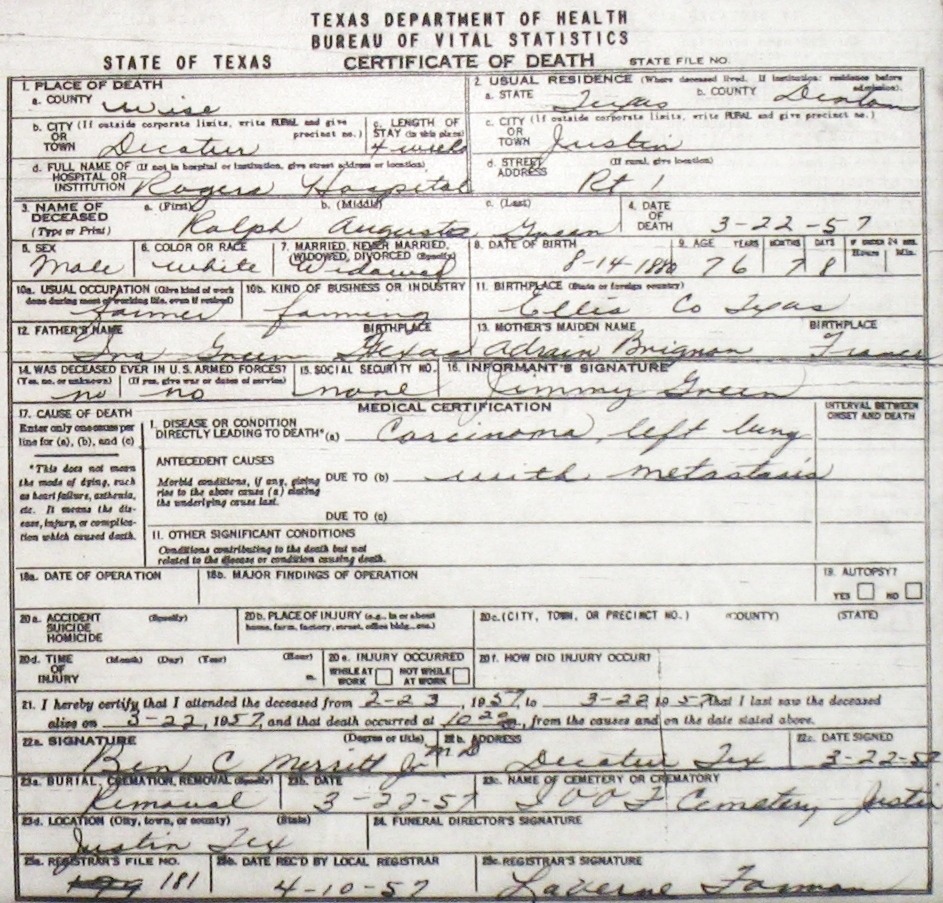 TEXAS DEPARTMENT OF HEALTH
BUREAU OF VITAL STATISTICS
STATE OF TEXAS CERTIFICATE OF DEATH STATE FILE NO.
1. PLACE OF DEATH
a. COUNTY Wise
2. USUAL RESIDENCE (Where deceased lived. If institution: residence before admission).
a. STATE Texas b. COUNTY Denton
b. CITY (If outside corporate limits, write RURAL and give precinct no.)
OR
TOWN Decatur
c. LENGTH OF
STAY (in this place)
4 weeks
c. CITY (If outside corporate limits, write RURAL and give precinct no.)
OR
TOWN Justin
d. FULL NAME OF (If not in hospital or institution, give street address or location)
HOSPITAL OR
INSTITUTION Rogers Hospital
d. STREET (If rural, give location)
ADDRESS Rt 1
3. NAME OF a. (First) b. (Middle) c. (Last)
DECEASED
(Type or Print) Ralph Augusta Green
4. DATE
OF
DEATH 3-22-57
5. SEX
Male
6. COLOR OR RACE
white
7. MARRIED, NEVER MARRIED,
WIDOWED, DIVORCED (Specify)
Widowed
8. DATE OF BIRTH
8-14-1880
9. AGE YEARS MONTHS DAYS IF UNDER 24 HRS.
Hours Min.
76 7 8
10a. USUAL OCCUPATION (Give kind of work
done during most of working life, even if retired)
Farmer
10b. KIND OF BUSINESS OR INDUSTRY
farming
11. BIRTHPLACE (State or foreign country)
Ellis Co Texas
12. FATHER'S NAME BIRTHPLACE
Ira Green Texas
13. MOTHER'S MAIDEN NAME BIRTHPLACE
Adrain Brignon France
14. WAS DECEASED EVER IN U.S. ARMED FORCES?
(Yes, no, or unknown) (If yes, give war or dates of service)
no no
15. SOCIAL SECURITY NO.
none
16. INFORMANT'S SIGNATURE
Jimmy Green
MEDICAL CERTIFICATION
INTERVAL BETWEEN
ONSET AND DEATH
17. CAUSE OF DEATH
Enter only one cause per
line for (a), (b), and (c)
*This does not mean
the mode of dying, such
as heart failure, asthenia,
etc. It means the dis-
ease, injury, or complica-
tion which caused death.
I. DISEASE OR CONDITION
DIRECTLY LEADING TO DEATH* (a) Carcinoma, left lung
ANTECEDENT CAUSES
Morbid conditions, if any, giving
rise to the above cause (a) stating
the underlying cause last.
DUE TO (b) with metastasis
DUE TO (c)
II. OTHER SIGNIFICANT CONDITIONS
Conditions contributing to the death but not
related to the disease or condition causing death.
18a. DATE OF OPERATION
18b. MAJOR FINDINGS OF OPERATION
19. AUTOPSY?
YES NO
20a. ACCIDENT (Specify)
SUICIDE
HOMICIDE
20b. PLACE OF INJURY (e.g., in or about
home, farm, factory, street, office bldg., etc.)
20c. (CITY, TOWN, OR PRECINCT NO.) (COUNTY) (STATE)
20d. TIME (Month) (Day) (Year) (Hour)
OF
INJURY m.
20e. INJURY OCCURRED
WHILE AT WORK NOT WHILE AT WORK
20f. HOW DID INJURY OCCUR?
21. I hereby certify that I attended the deceased from 2-23, 1957, to 3-22, 1957, that I last saw the deceased
alive on 3-22, 1957, and that death occurred at 10 m., from the causes and on the date stated above.
22a. SIGNATURE (Degree or title)
Ben C Merritt Jr MD
22b. ADDRESS
Decatur Tex
22c. DATE SIGNED
3-22-57
23a. BURIAL, CREMATION, REMOVAL (Specify)
Removal
23b. DATE
3-22-57
23c. NAME OF CEMETERY OR CREMATORY
IOOF Cemetery, Justin
23d. LOCATION (City, town, or county) (State)
Justin Tex
24. FUNERAL DIRECTOR'S SIGNATURE
25a. REGISTRAR'S FILE NO.
181
25b. DATE REC'D BY LOCAL REGISTRAR
4-10-57
25c. REGISTRAR'S SIGNATURE
LaVerne Forman